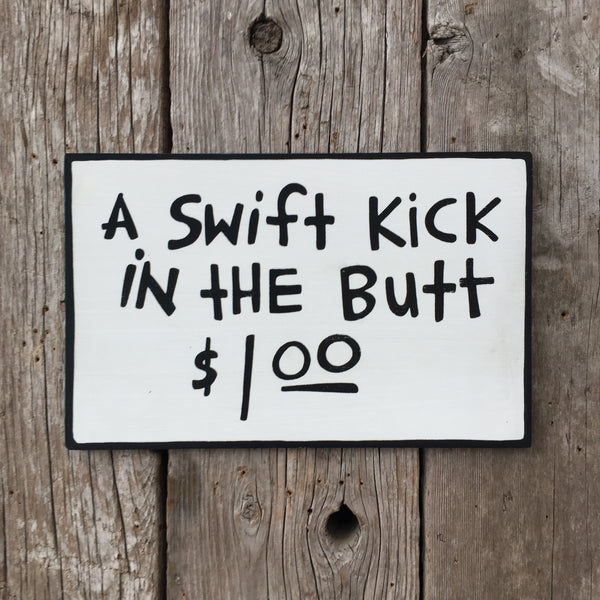 A Swift Kick
iN tHE Butt
$1.00